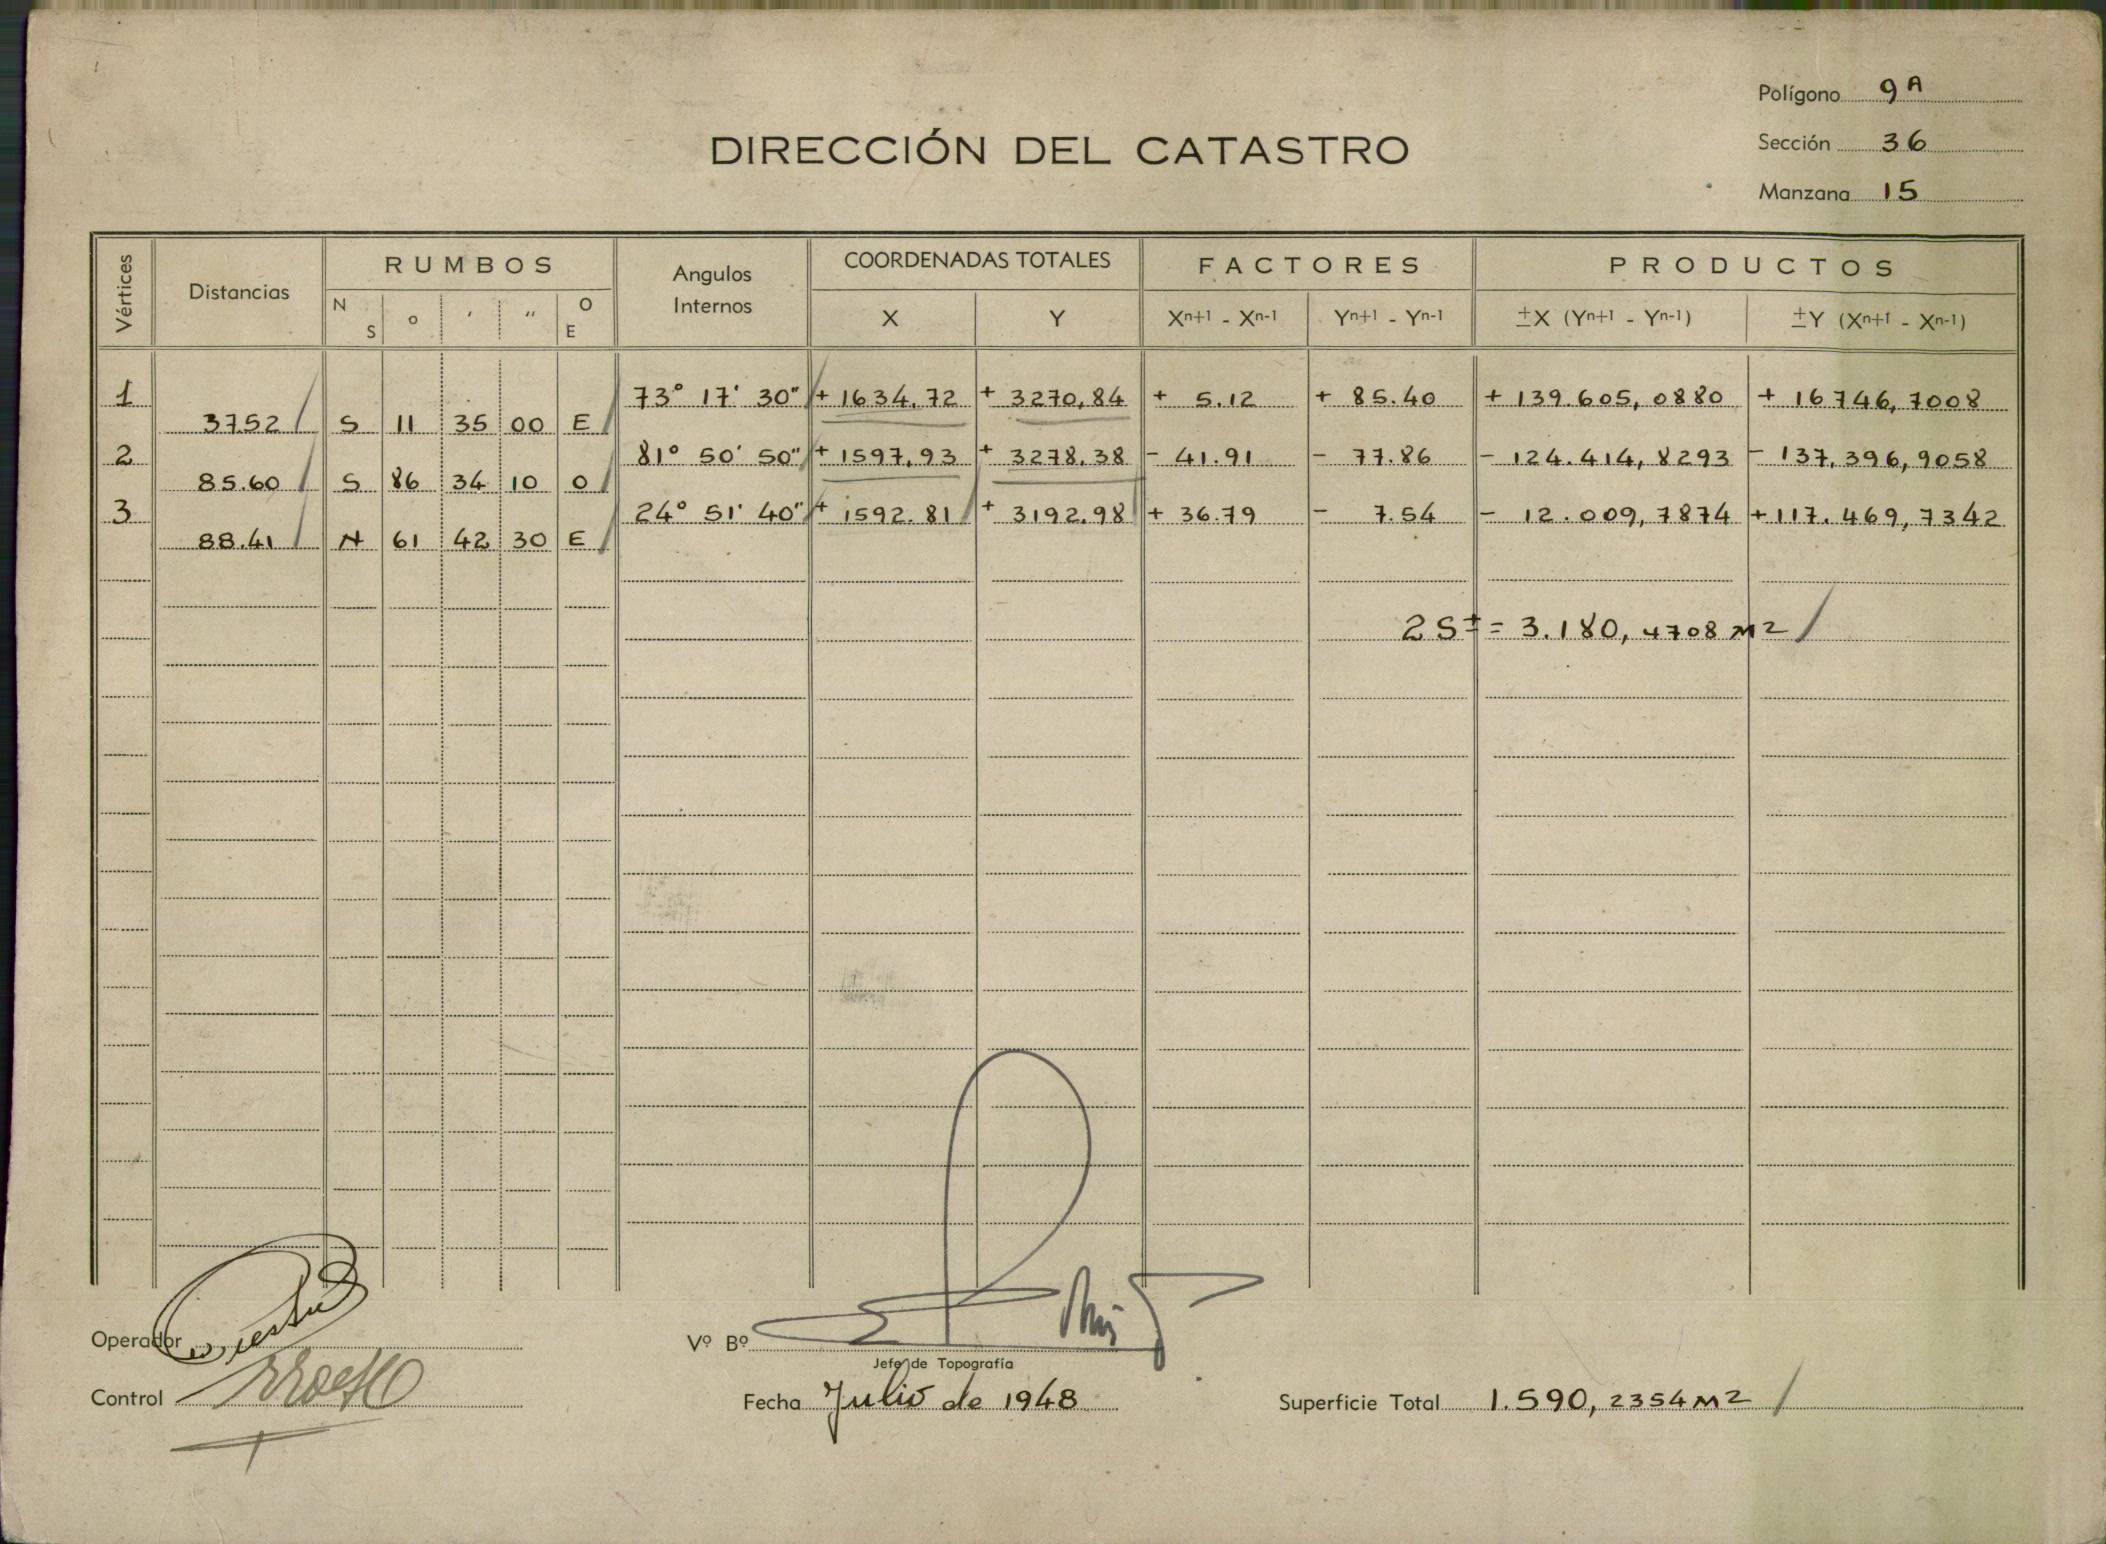 Polígono 9 A
DIRECCIÓN DEL CATASTRO
Sección 36
Manzana 15
Vértices Distancias RUMBOS Angulos Internos COORDENADAS TOTALES FACTORES PRODUCTOS
N S o ' " O E X Y Xn+1 - Xn-1 Yn+1 - Yn-1 ±X (Yn+1 - Yn-1) ±Y (Xn+1 - Xn-1)
1 73° 17' 30" + 1634,72 + 3270,84 + 5.12 + 85.40 + 139.605,0880 + 16746,7008
37.52 S 11 35 00 E
2 81° 50' 50" + 1597,93 + 3278,38 - 41.91 - 77.86 - 124.414,8293 - 137,396,9058
85.60 S 86 34 10 O
3 24° 51' 40" + 1592.81 + 3192,98 + 36.79 - 7.54 - 12.009,7874 + 117.469,7342
88.41 N 61 42 30 E
2S± = 3.180,4708 M2
Operador
Vº Bº
Jefe de Topografía
Control
Fecha Julio de 1948
Superficie Total 1.590,2354 M2